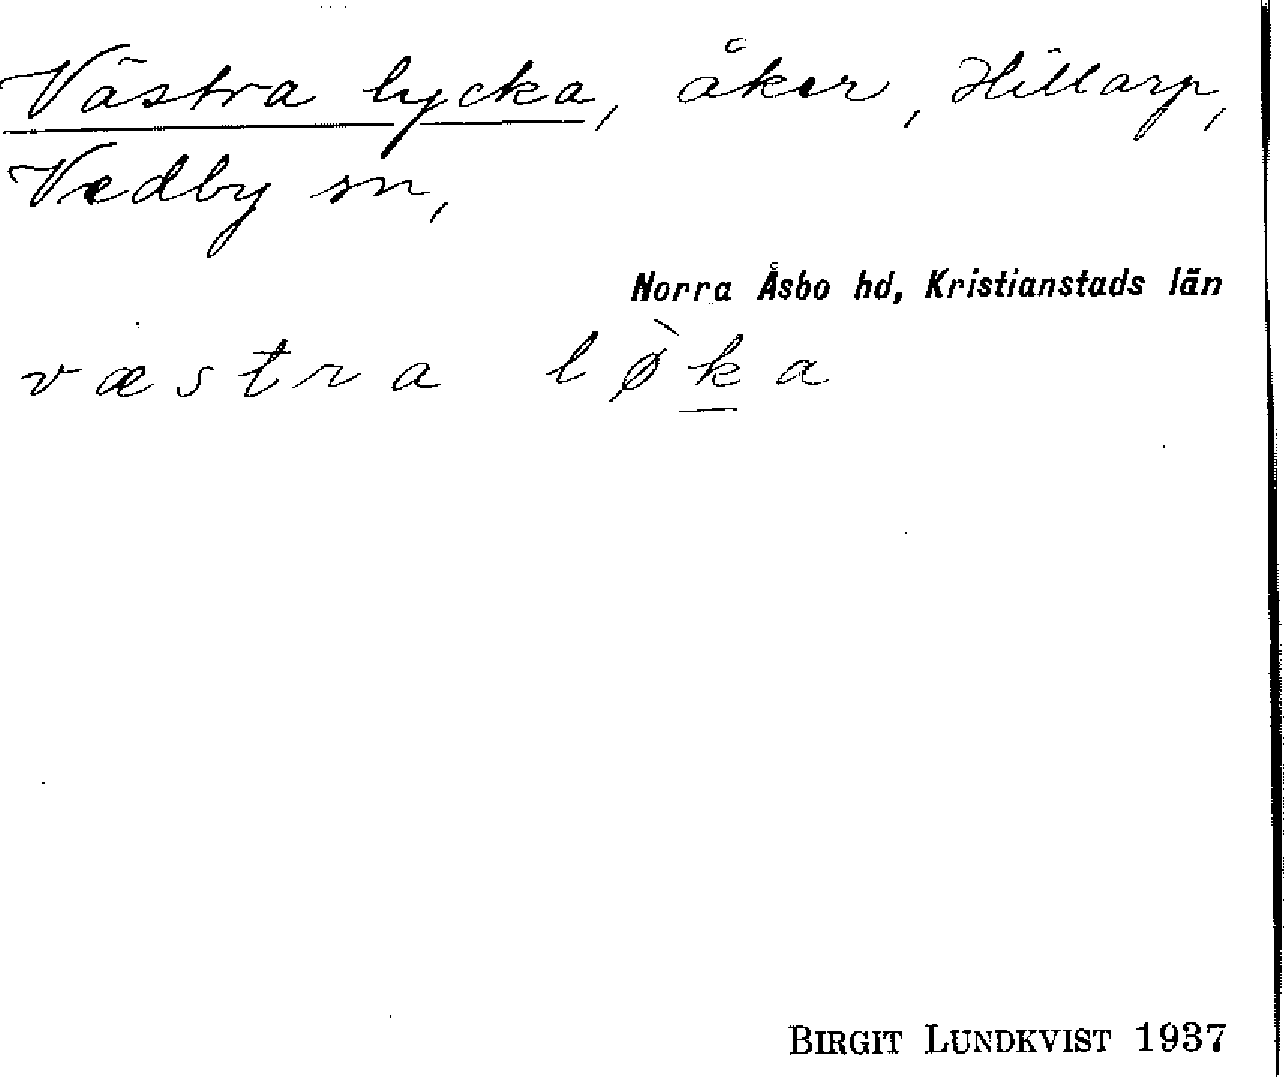 Västra lycka, åker, Hillarp,
Vedby sn,
Norra Åsbo hd, Kristianstads län
væstra lø̀k̲a
BIRGIT LUNDKVIST 1937